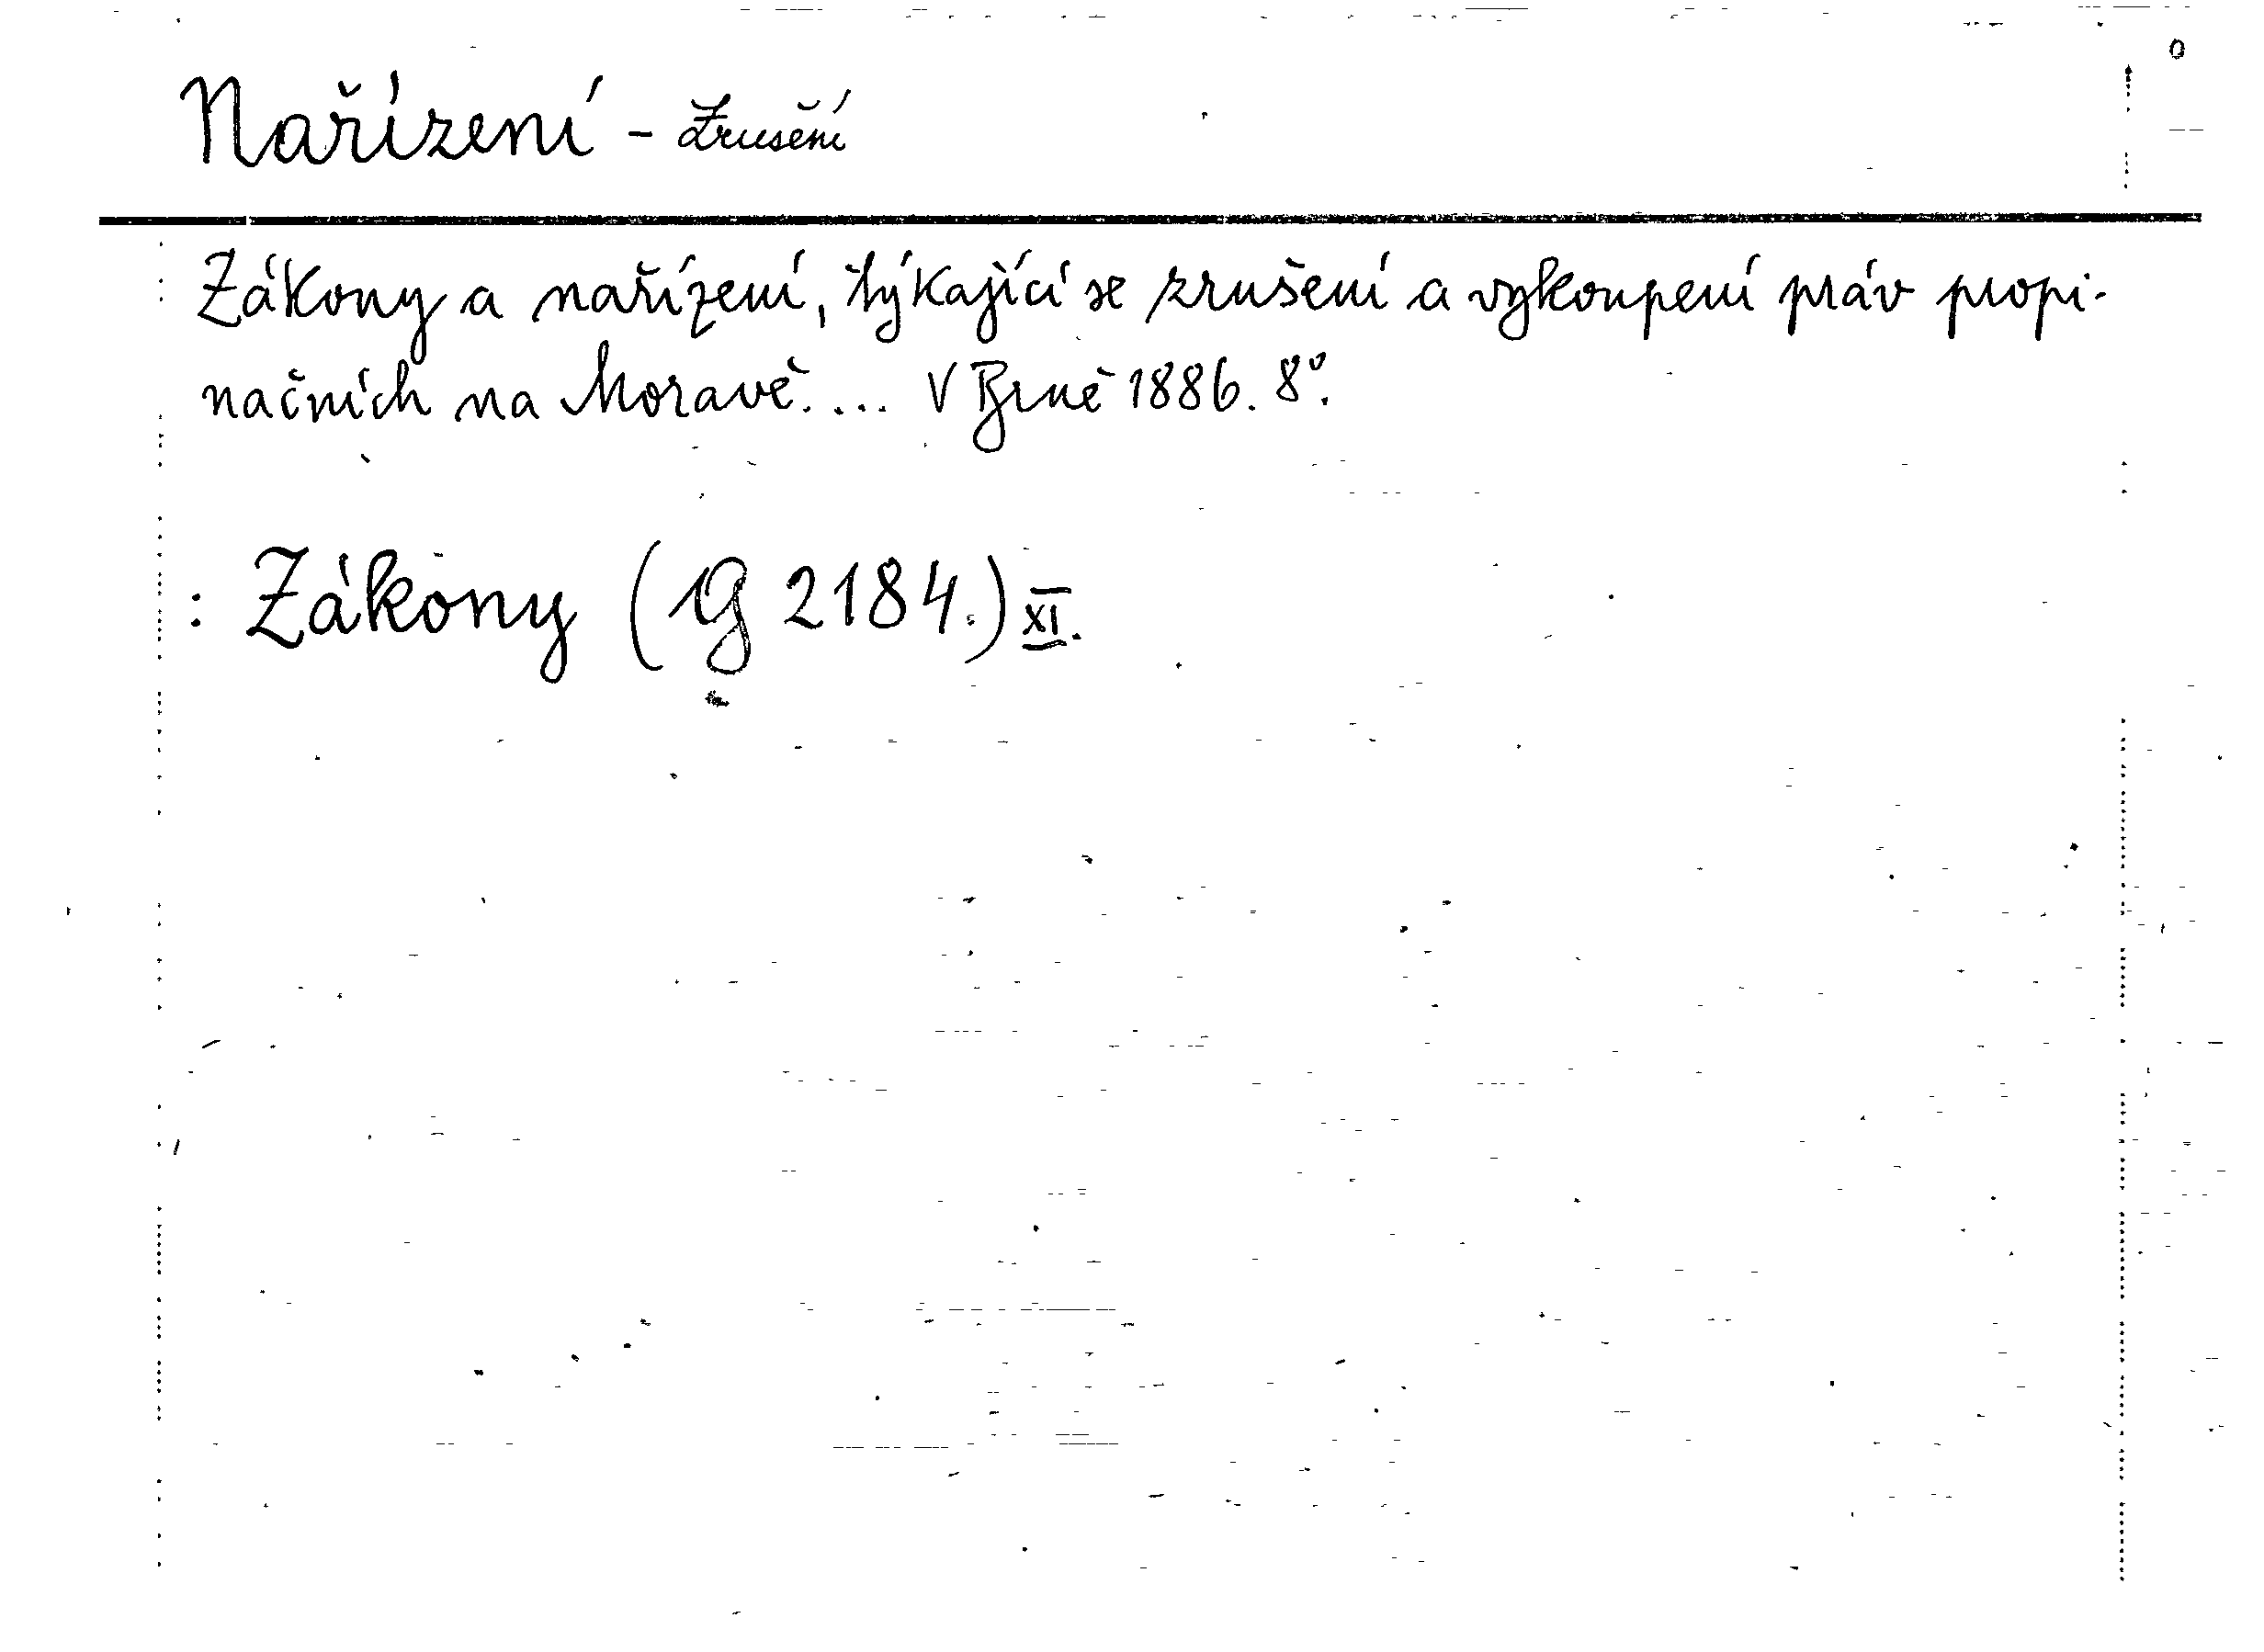 Nařízení - Zrušení
Zákony a nařízení, týkající se zrušení a vykoupení práv propi-
načních na Moravě.... V Brně 1886. 8°.
: Zákony (G 2184.) XI.